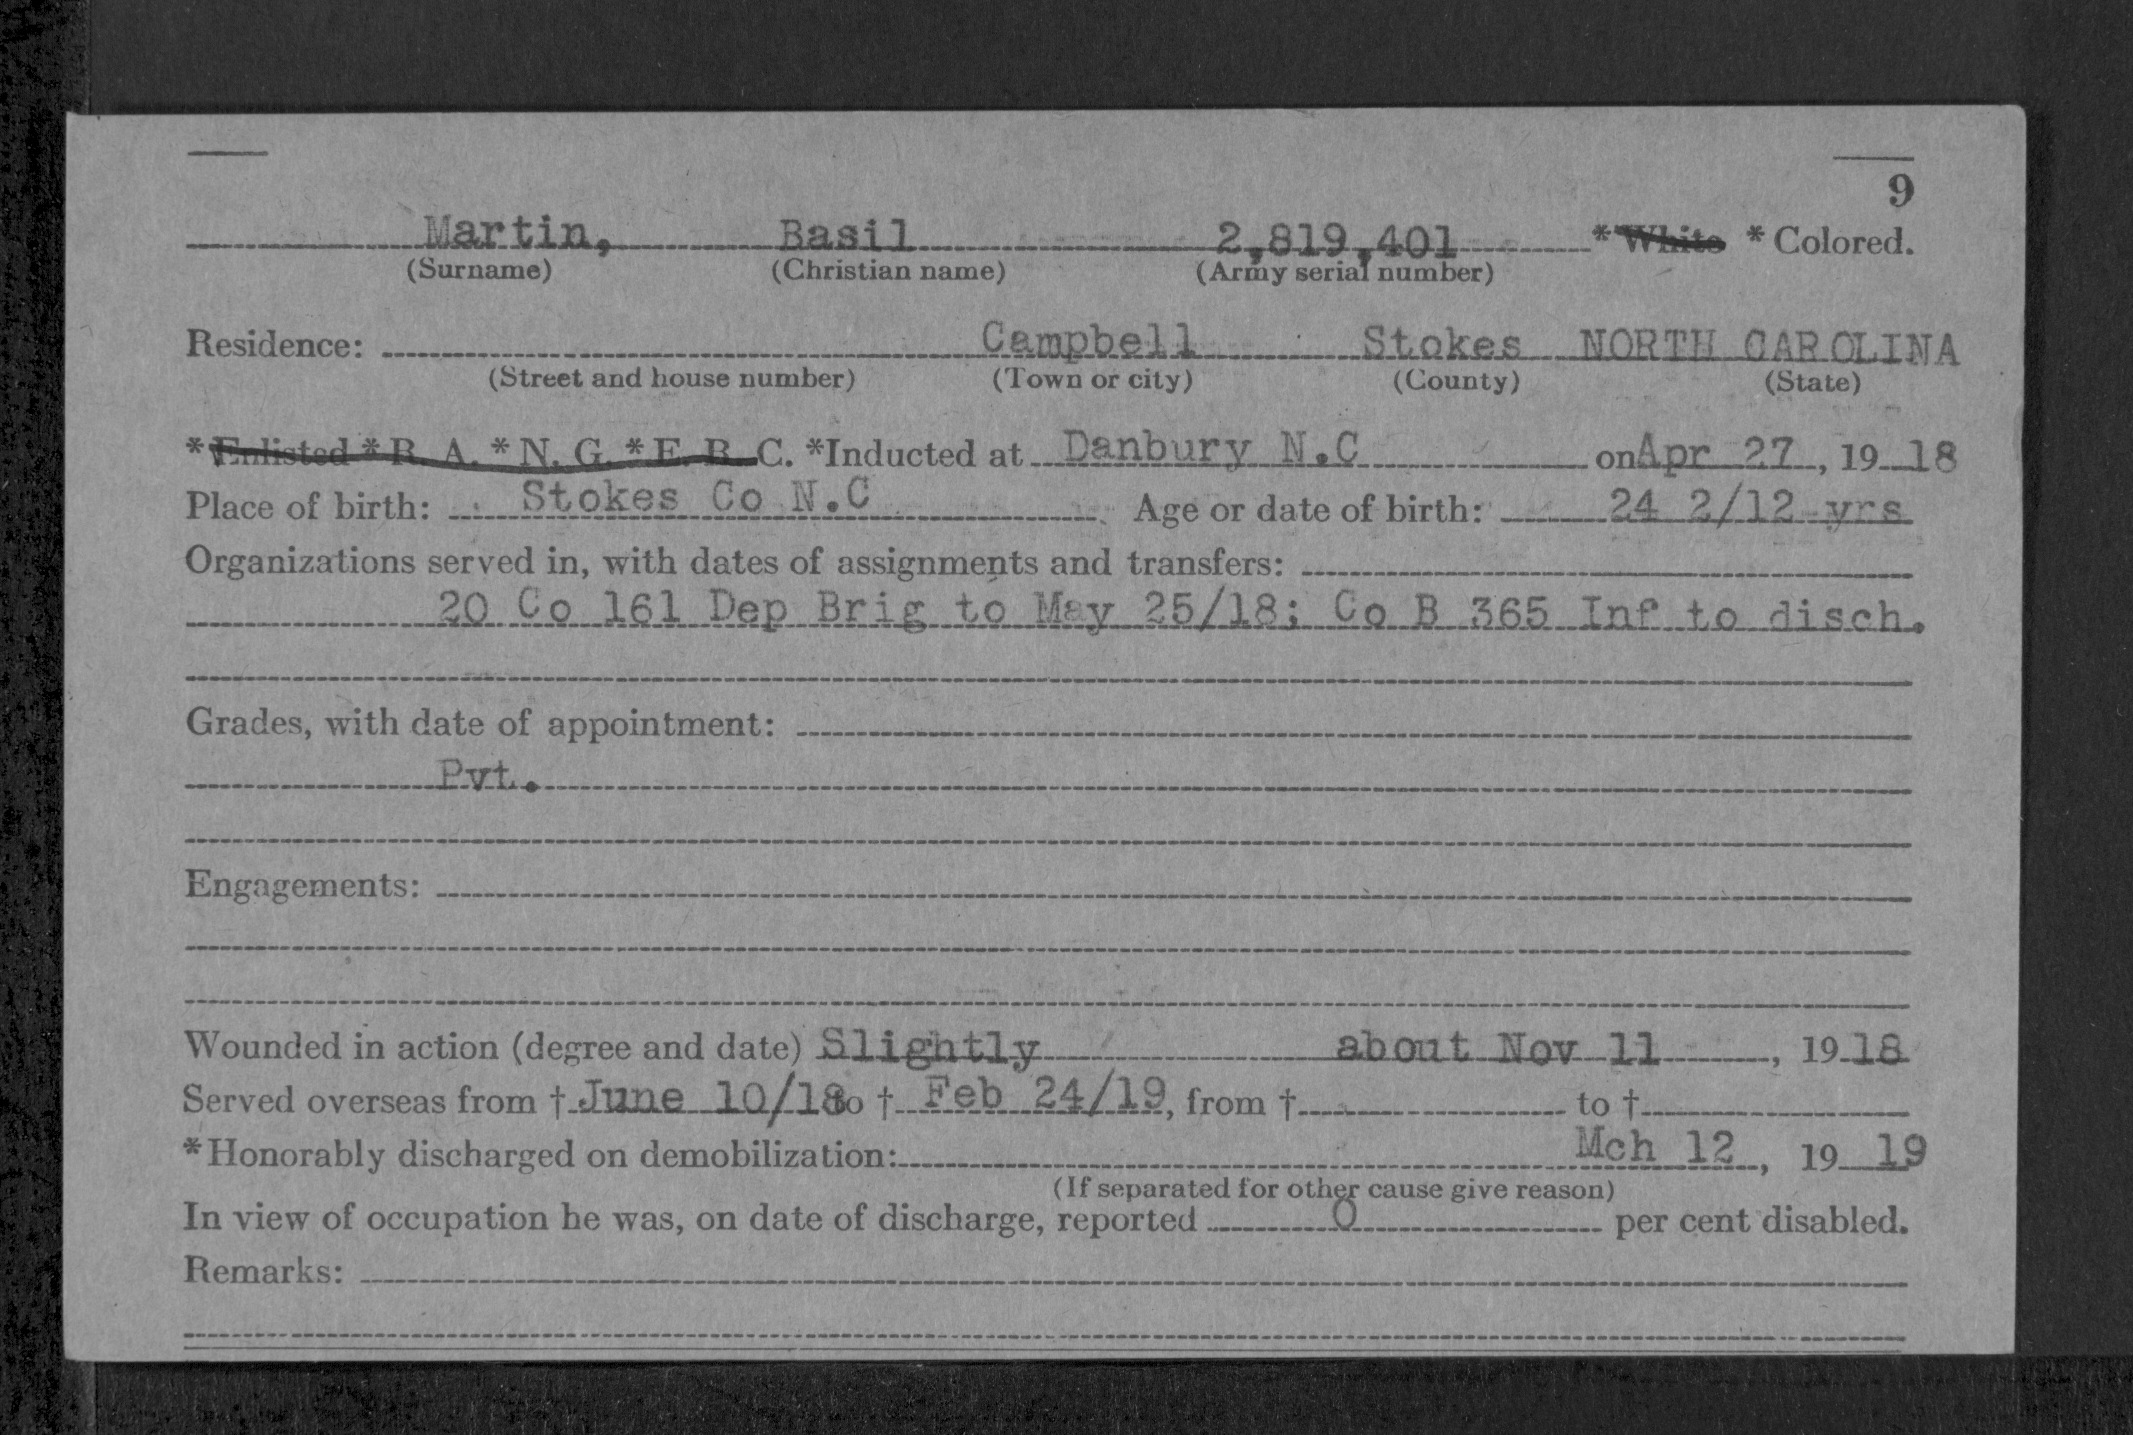 9
Martin, Basil 2,819,401 *White *Colored.
(Surname) (Christian name) (Army serial number)
Residence: Campbell Stokes NORTH CAROLINA
(Street and house number) (Town or city) (County) (State)
*Enlisted *R. A. *N. G. *E. R. C. *Inducted at Danbury N.C on Apr 27, 19 18
Place of birth: Stokes Co N.C Age or date of birth: 24 2/12 yrs
Organizations served in, with dates of assignments and transfers:
20 Co 161 Dep Brig to May 25/18; Co B 365 Inf to disch.
Grades, with date of appointment:
Pvt.
Engagements:
Wounded in action (degree and date) Slightly about Nov 11, 19 18
Served overseas from † June 10/18 to † Feb 24/19, from † to †
*Honorably discharged on demobilization: Mch 12, 19 19
(If separated for other cause give reason)
In view of occupation he was, on date of discharge, reported 0 per cent disabled.
Remarks: